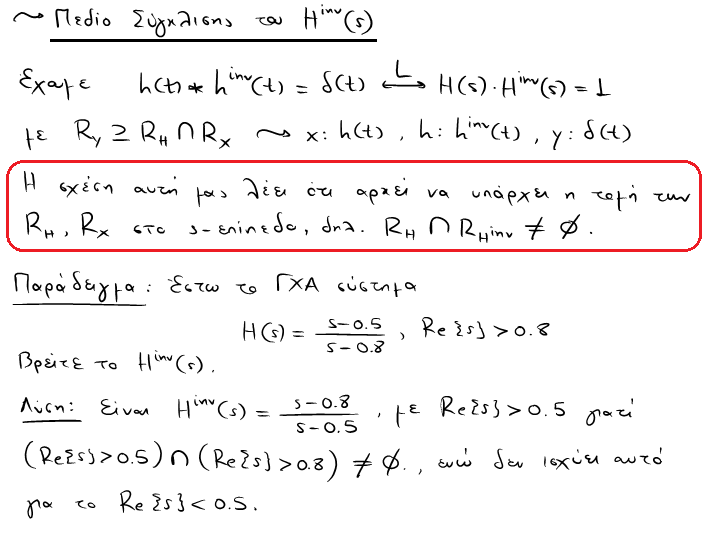 ~ Πεδίο Σύγκλισης του H^inv(s)
Έχαμε h(t) * h^inv(t) = δ(t) <-L-> H(s)·H^inv(s) = 1
με R_y ≥ R_H ∩ R_x ~ x: h(t), h: h^inv(t), y: δ(t)
Η σχέση αυτή μας λέει ότι αρκεί να υπάρχει η τομή των
R_H, R_x στο s-επίπεδο, δηλ. R_H ∩ R_H^inv ≠ ∅.
Παράδειγμα: Έστω το ΓΧΑ σύστημα
H(s) = (s-0.5)/(s-0.8), Re{s} > 0.8
Βρείτε το H^inv(s).
Λύση: Είναι H^inv(s) = (s-0.8)/(s-0.5), με Re{s} > 0.5 γιατί
(Re{s} > 0.5) ∩ (Re{s} > 0.8) ≠ ∅., ενώ δεν ισχύει αυτό
για το Re{s} < 0.5.